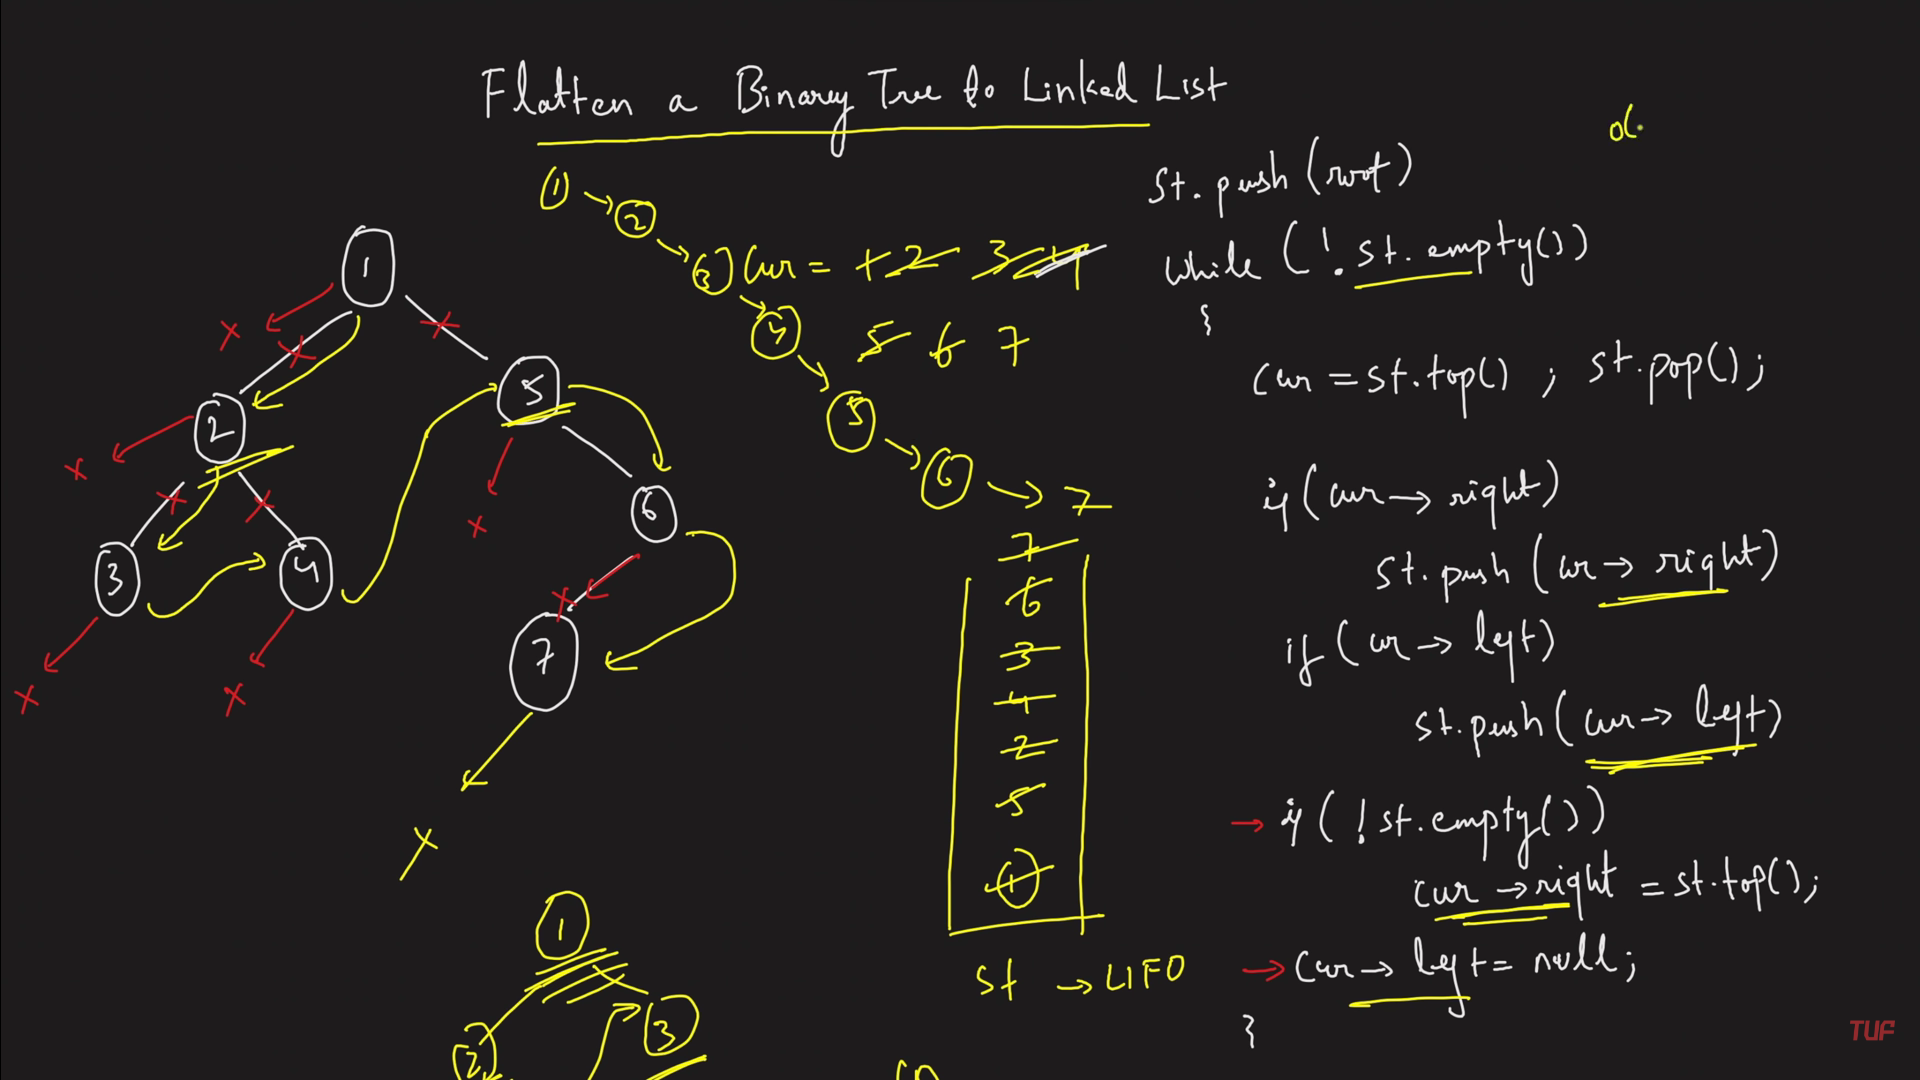 Flatten a Binary Tree to Linked List
1 → 2 → 3 → 4 → 5 → 6 → 7
Cur = 1 2 3 4
5 6 7
1
2 5
3 4 6
7
x x x x x x x x x x x x
7
6
3
4
2
5
1
st → LIFO
1
2 3
st.push(root)
while (!st.empty())
{
cur = st.top() ; st.pop();
if (cur → right)
st.push (cur → right)
if (cur → left)
st.push (cur → left)
→ if (!st.empty())
cur → right = st.top();
→ cur → left = null;
}
TUF